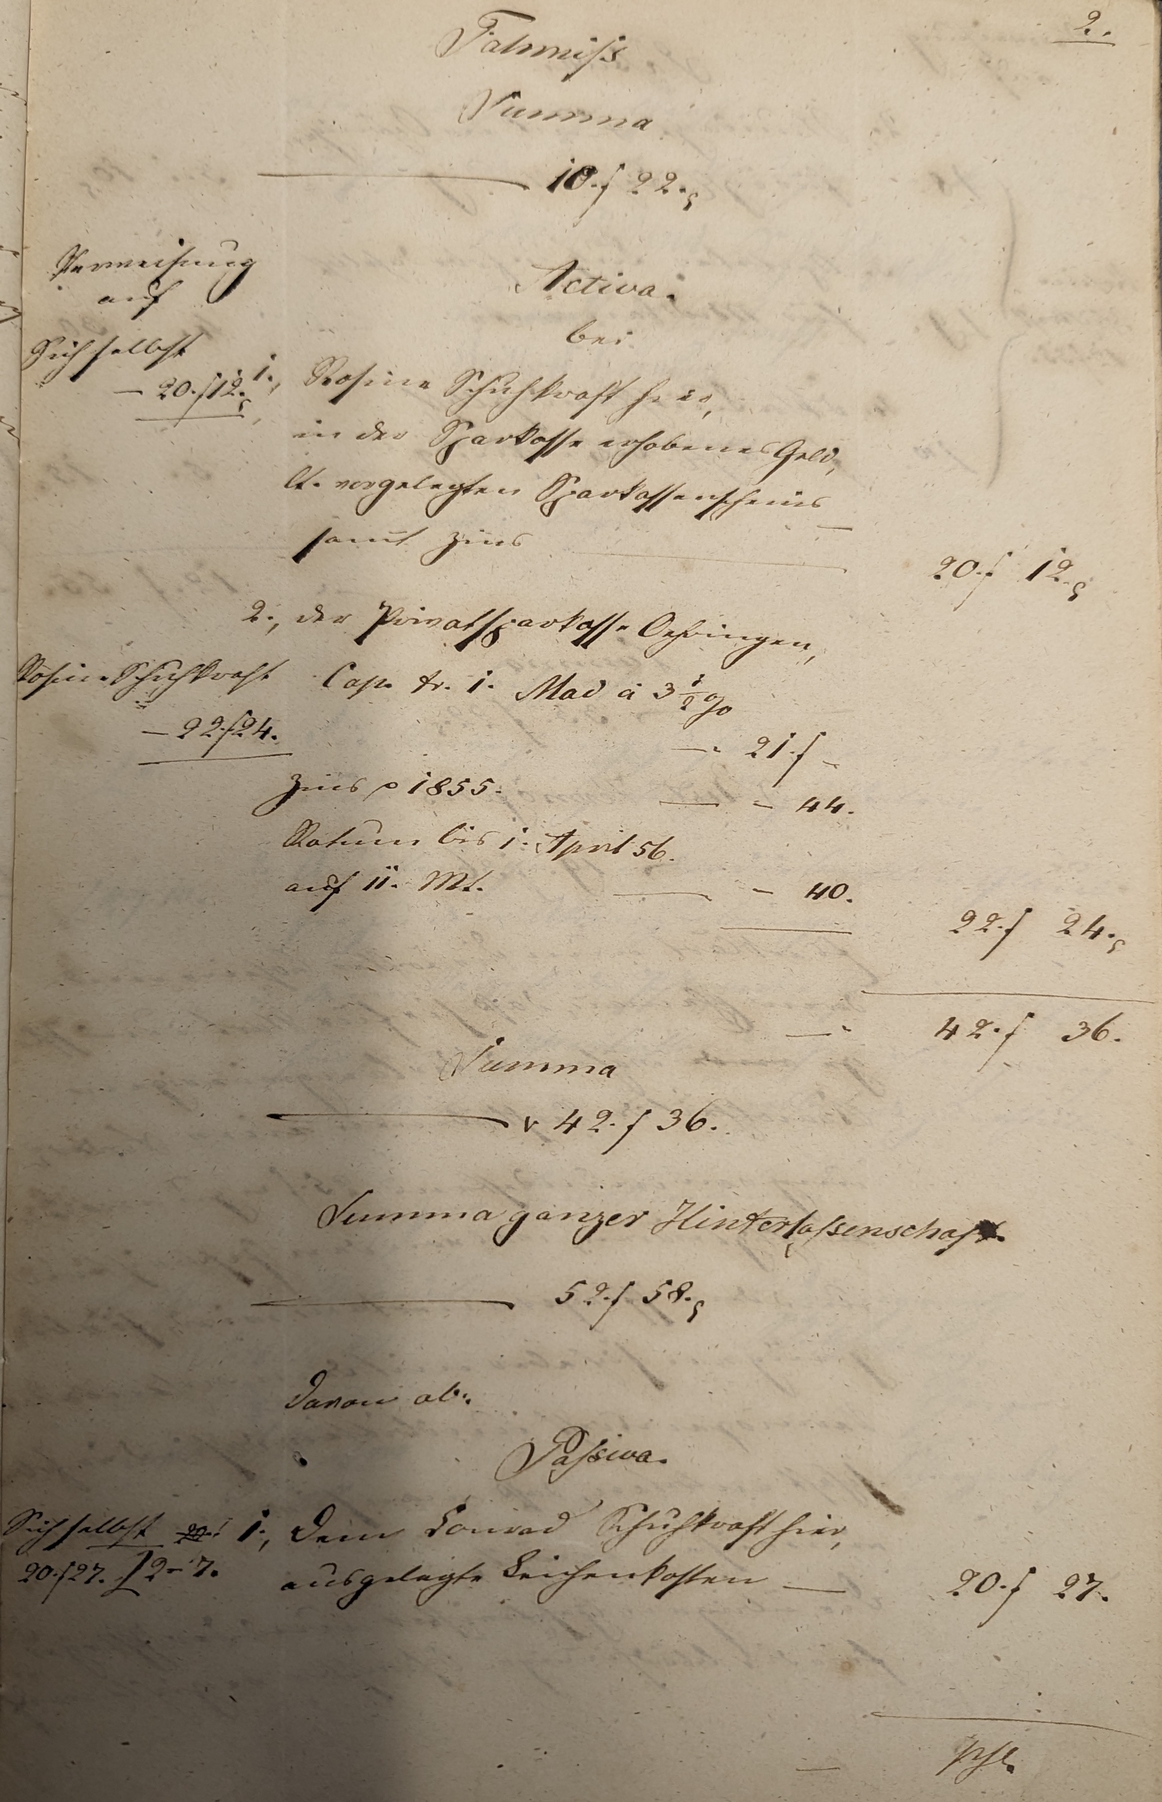 2.
Fahrniß
Summa
10. f 22.
Verweisung
auf
Activa.
bei
Sich selbst
— 20. f 12.
1., Rosine Schuhkraft hier,
in der Sparkasse erhobenes Geld,
lt. vorgelegten Sparkassenscheins
samt Zins — 20. f 12.
2., der Privatsparkasse Oehringen,
Rosine Schuhkraft
— 22 f 24.
Cap. fr. 1. Mad à 3 1/2 %
— 21. f —
Zins p 1855. — 44.
Ratum bis 1. April 56.
auf 11. Mt. — 40.
22. f 24.
— 42. f 36.
Summa
42. f 36.
Summa ganzer Hinterlassenschaft.
52. f 58.
Davon ab:
Passiva.
Sich selbst
20. f 27. f 2 - 7.
1., Dem Conrad Schuhkraft hier,
ausgelegte Leichenkosten — 20. f 27.